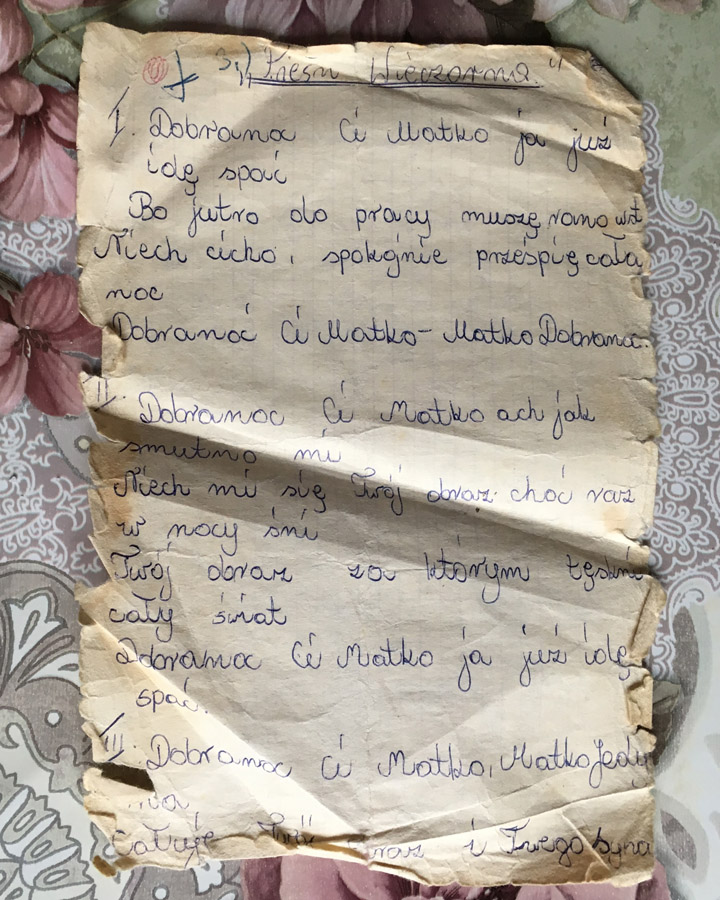 3.) "Pieśń Wieczorna."
I. Dobranoc Ci Matko ja już
idę spać
Bo jutro do pracy muszę rano wst
Niech cicho, spokojnie prześpię cała
noc
Dobranoć Ci Matko - Matko Dobranoc.
II. Dobranoc Ci Matko ach jak
smutno mi
Niech mi się Twój obraz choć raz
w nocy śni
Twój obraz za którym tęskni
cały świat
Dobranoc Ci Matko ja już idę
spać.
III. Dobranoc Ci Matko, Matko Jedy
na
Całuję i Twego Syna